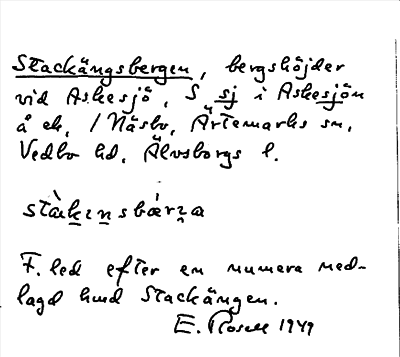 Stackängsbergen, bergshöjder
vid Askesjö, S sj i Askesjön
å ek, / Näsbo, Ärtemarks sn,
Vedbo hd, Älvsborgs l.
F. led efter en numera ned-
lagd hmd Stackängen.
E. Rosell 1949